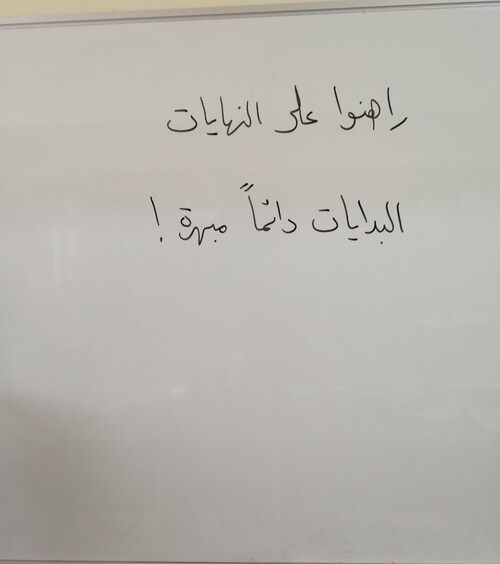 راهنوا على النهايات
البدايات دائماً مبهرة !